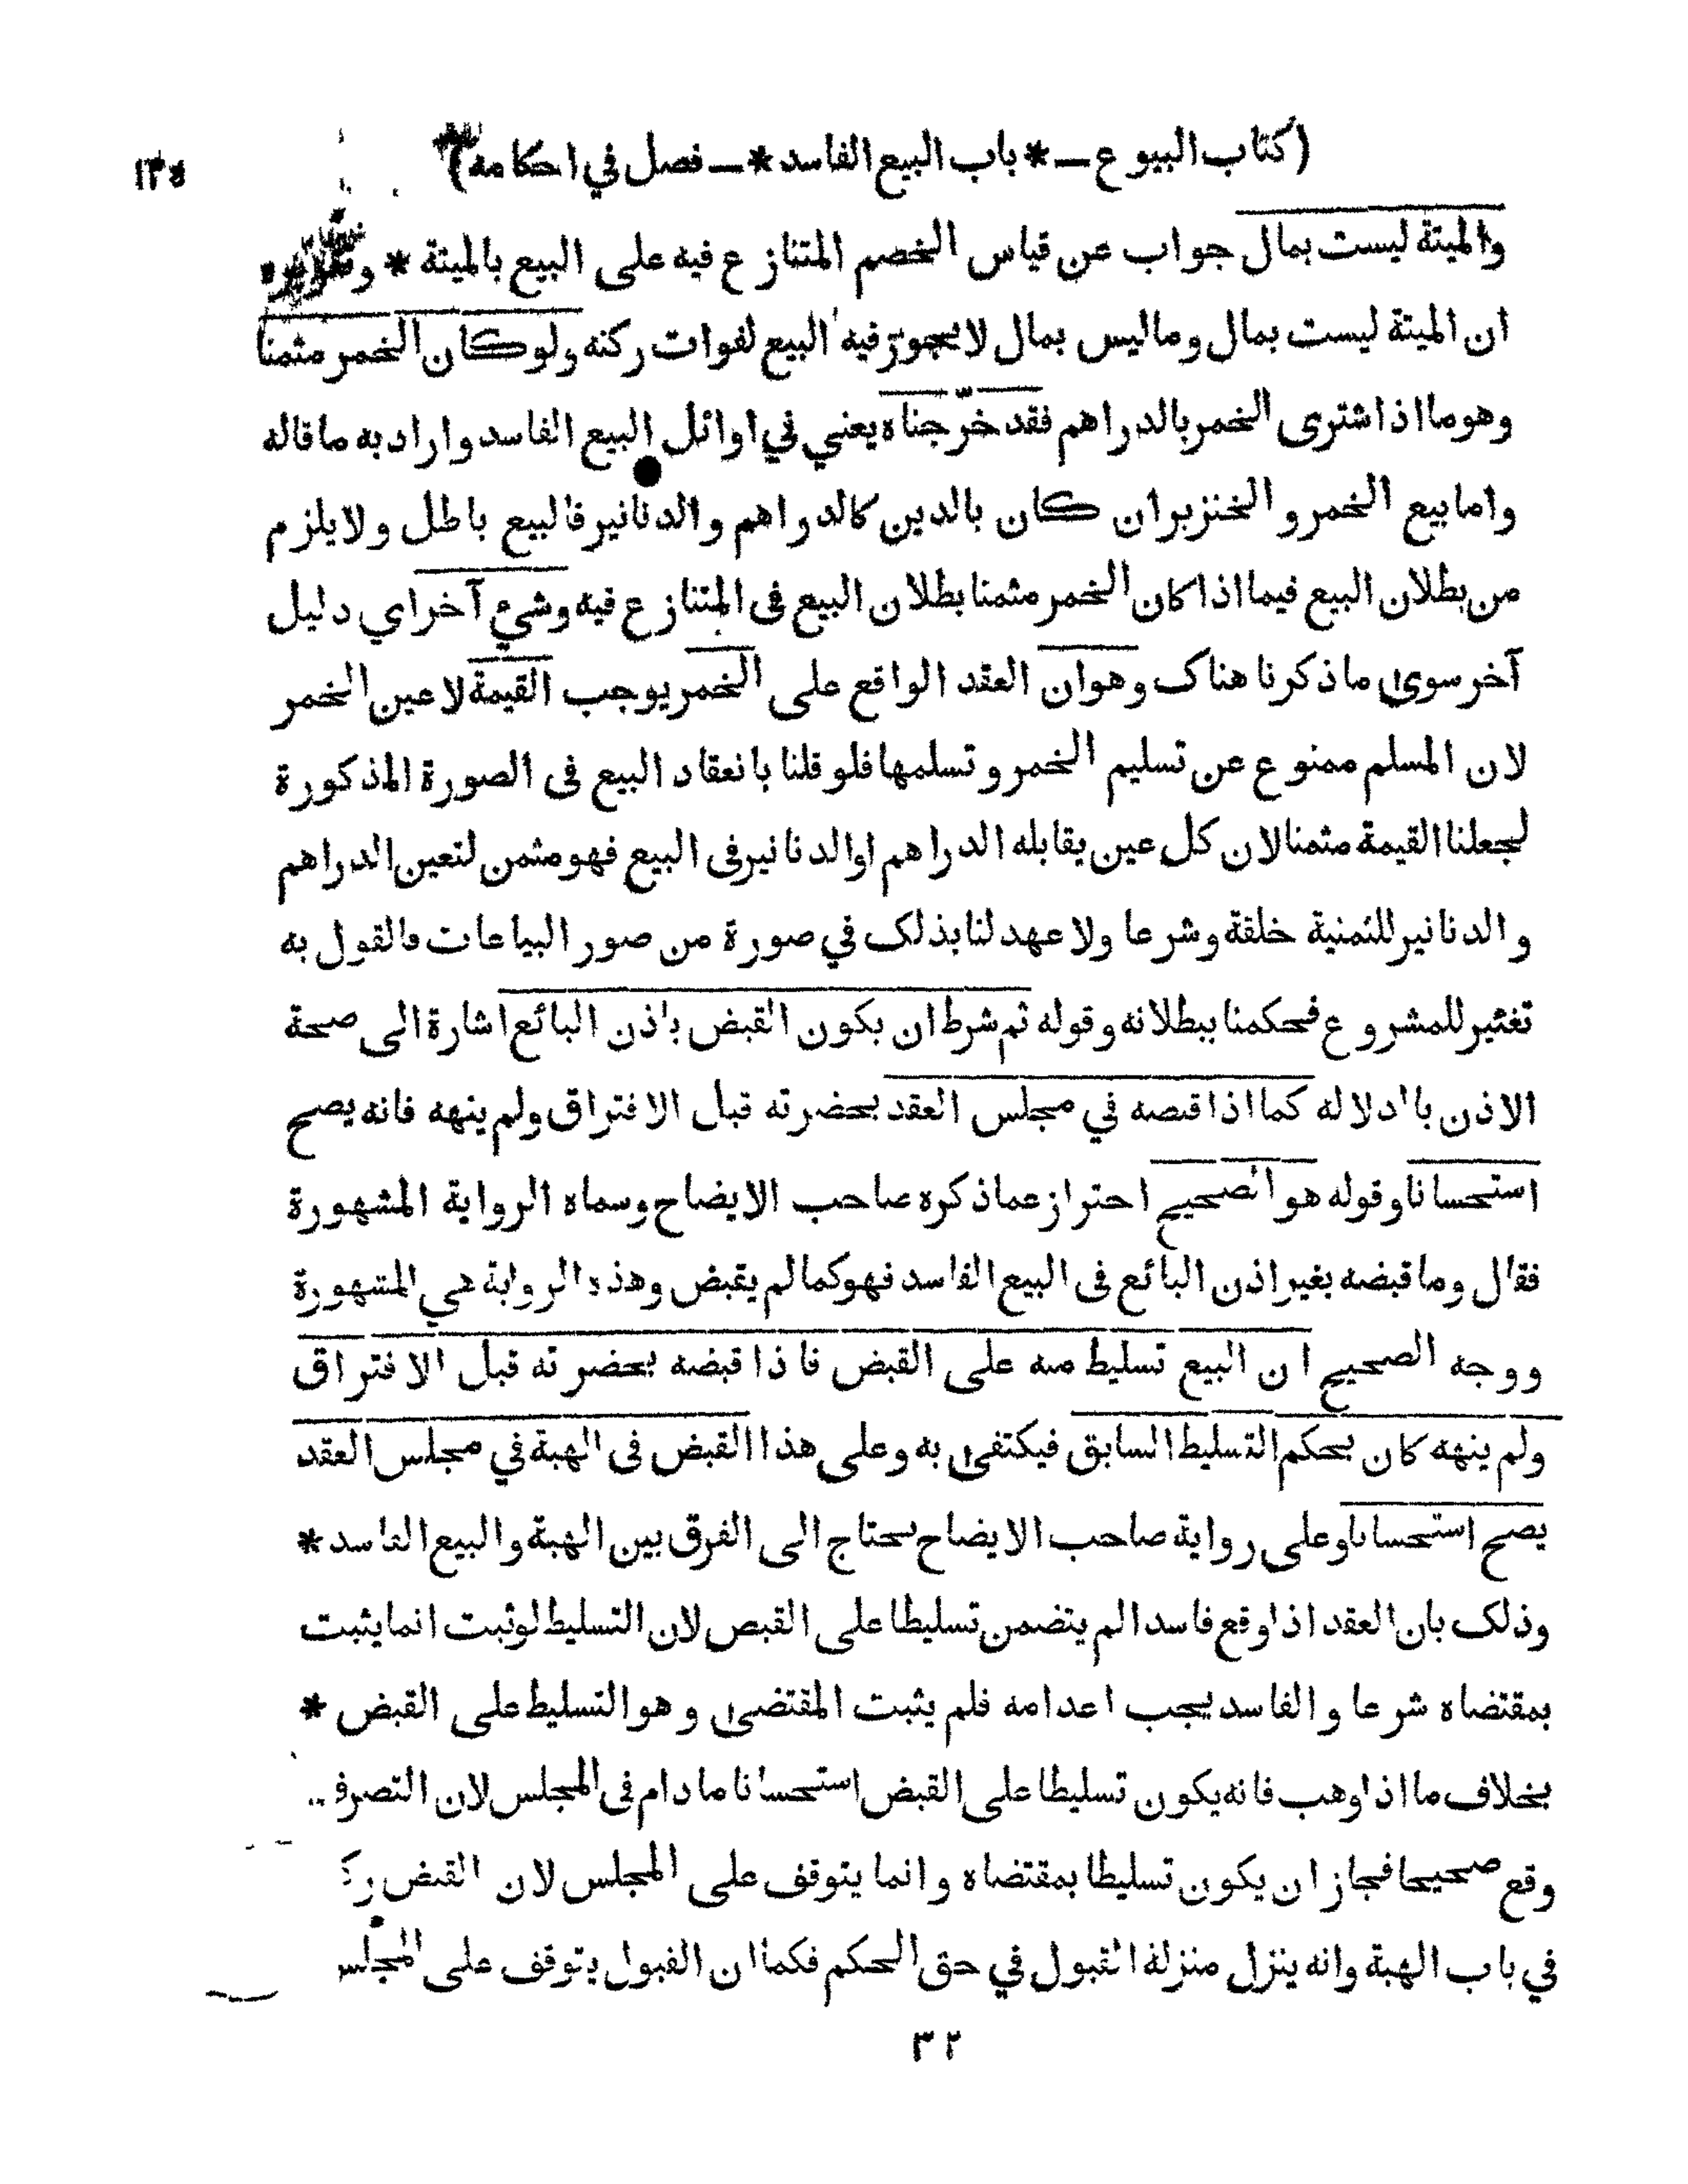 (كتاب البيوع ـ * باب البيع الفاسد * ـ فصل في احكامه)
والميتة ليست بمال جواب عن قياس الخصم المتنازع فيه على البيع بالميتة *
ان الميتة ليست بمال وما ليس بمال لا يجوز فيه البيع لفوات ركنه ولو كان الخمر مثمنا
وهو ما اذا اشترى الخمر بالدراهم فقد خرّجناه يعني في اوائل البيع الفاسد واراد به ما قاله
واما بيع الخمر والخنزير ان كان بالدين كالدراهم والدنانير فالبيع باطل ولا يلزم
من بطلان البيع فيما اذا كان الخمر مثمنا بطلان البيع فى المتنازع فيه وشيء آخر اي دليل
آخر سوى ما ذكرنا هناك وهو ان العقد الواقع على الخمر يوجب القيمة لا عين الخمر
لان المسلم ممنوع عن تسليم الخمر وتسلمها فلو قلنا بانعقاد البيع فى الصورة المذكورة
لجعلنا القيمة مثمنا لان كل عين يقابله الدراهم او الدنانير فى البيع فهو مثمن لتعين الدراهم
والدنانير للثمنية خلقة وشرعا ولا عهد لنا بذلك في صورة من صور البياعات فالقول به
تغئير للمشروع فحكمنا ببطلانه وقوله ثم شرط ان يكون القبض باذن البائع اشارة الى صحة
الاذن بالدلاله كما اذا قبضه في مجلس العقد بحضرته قبل الافتراق ولم ينهه فانه يصح
استحسانا وقوله هو الصحيح احتراز عما ذكره صاحب الايضاح وسماه الرواية المشهورة
فقال وما قبضه بغير اذن البائع فى البيع الفاسد فهو كما لم يقبض وهذه الرواية هي المشهورة
ووجه الصحيح ان البيع تسليط منه على القبض فاذا قبضه بحضرته قبل الافتراق
ولم ينهه كان بحكم التسليط السابق فيكتفى به وعلى هذا القبض فى الهبة في مجلس العقد
يصح استحسانا وعلى رواية صاحب الايضاح يحتاج الى الفرق بين الهبة والبيع الفاسد *
وذلك بان العقد اذا وقع فاسدا لم يتضمن تسليطا على القبض لان التسليط لو ثبت انما يثبت
بمقتضاه شرعا والفاسد يجب اعدامه فلم يثبت المقتضى وهو التسليط على القبض *
بخلاف ما اذا وهب فانه يكون تسليطا على القبض استحسانا ما دام فى المجلس لان التصرف
وقع صحيحا فجاز ان يكون تسليطا بمقتضاه وانما يتوقف على المجلس لان القبض
في باب الهبة وانه ينزل منزلة القبول في حق الحكم فكما ان القبول يتوقف على المجلس
٣٢